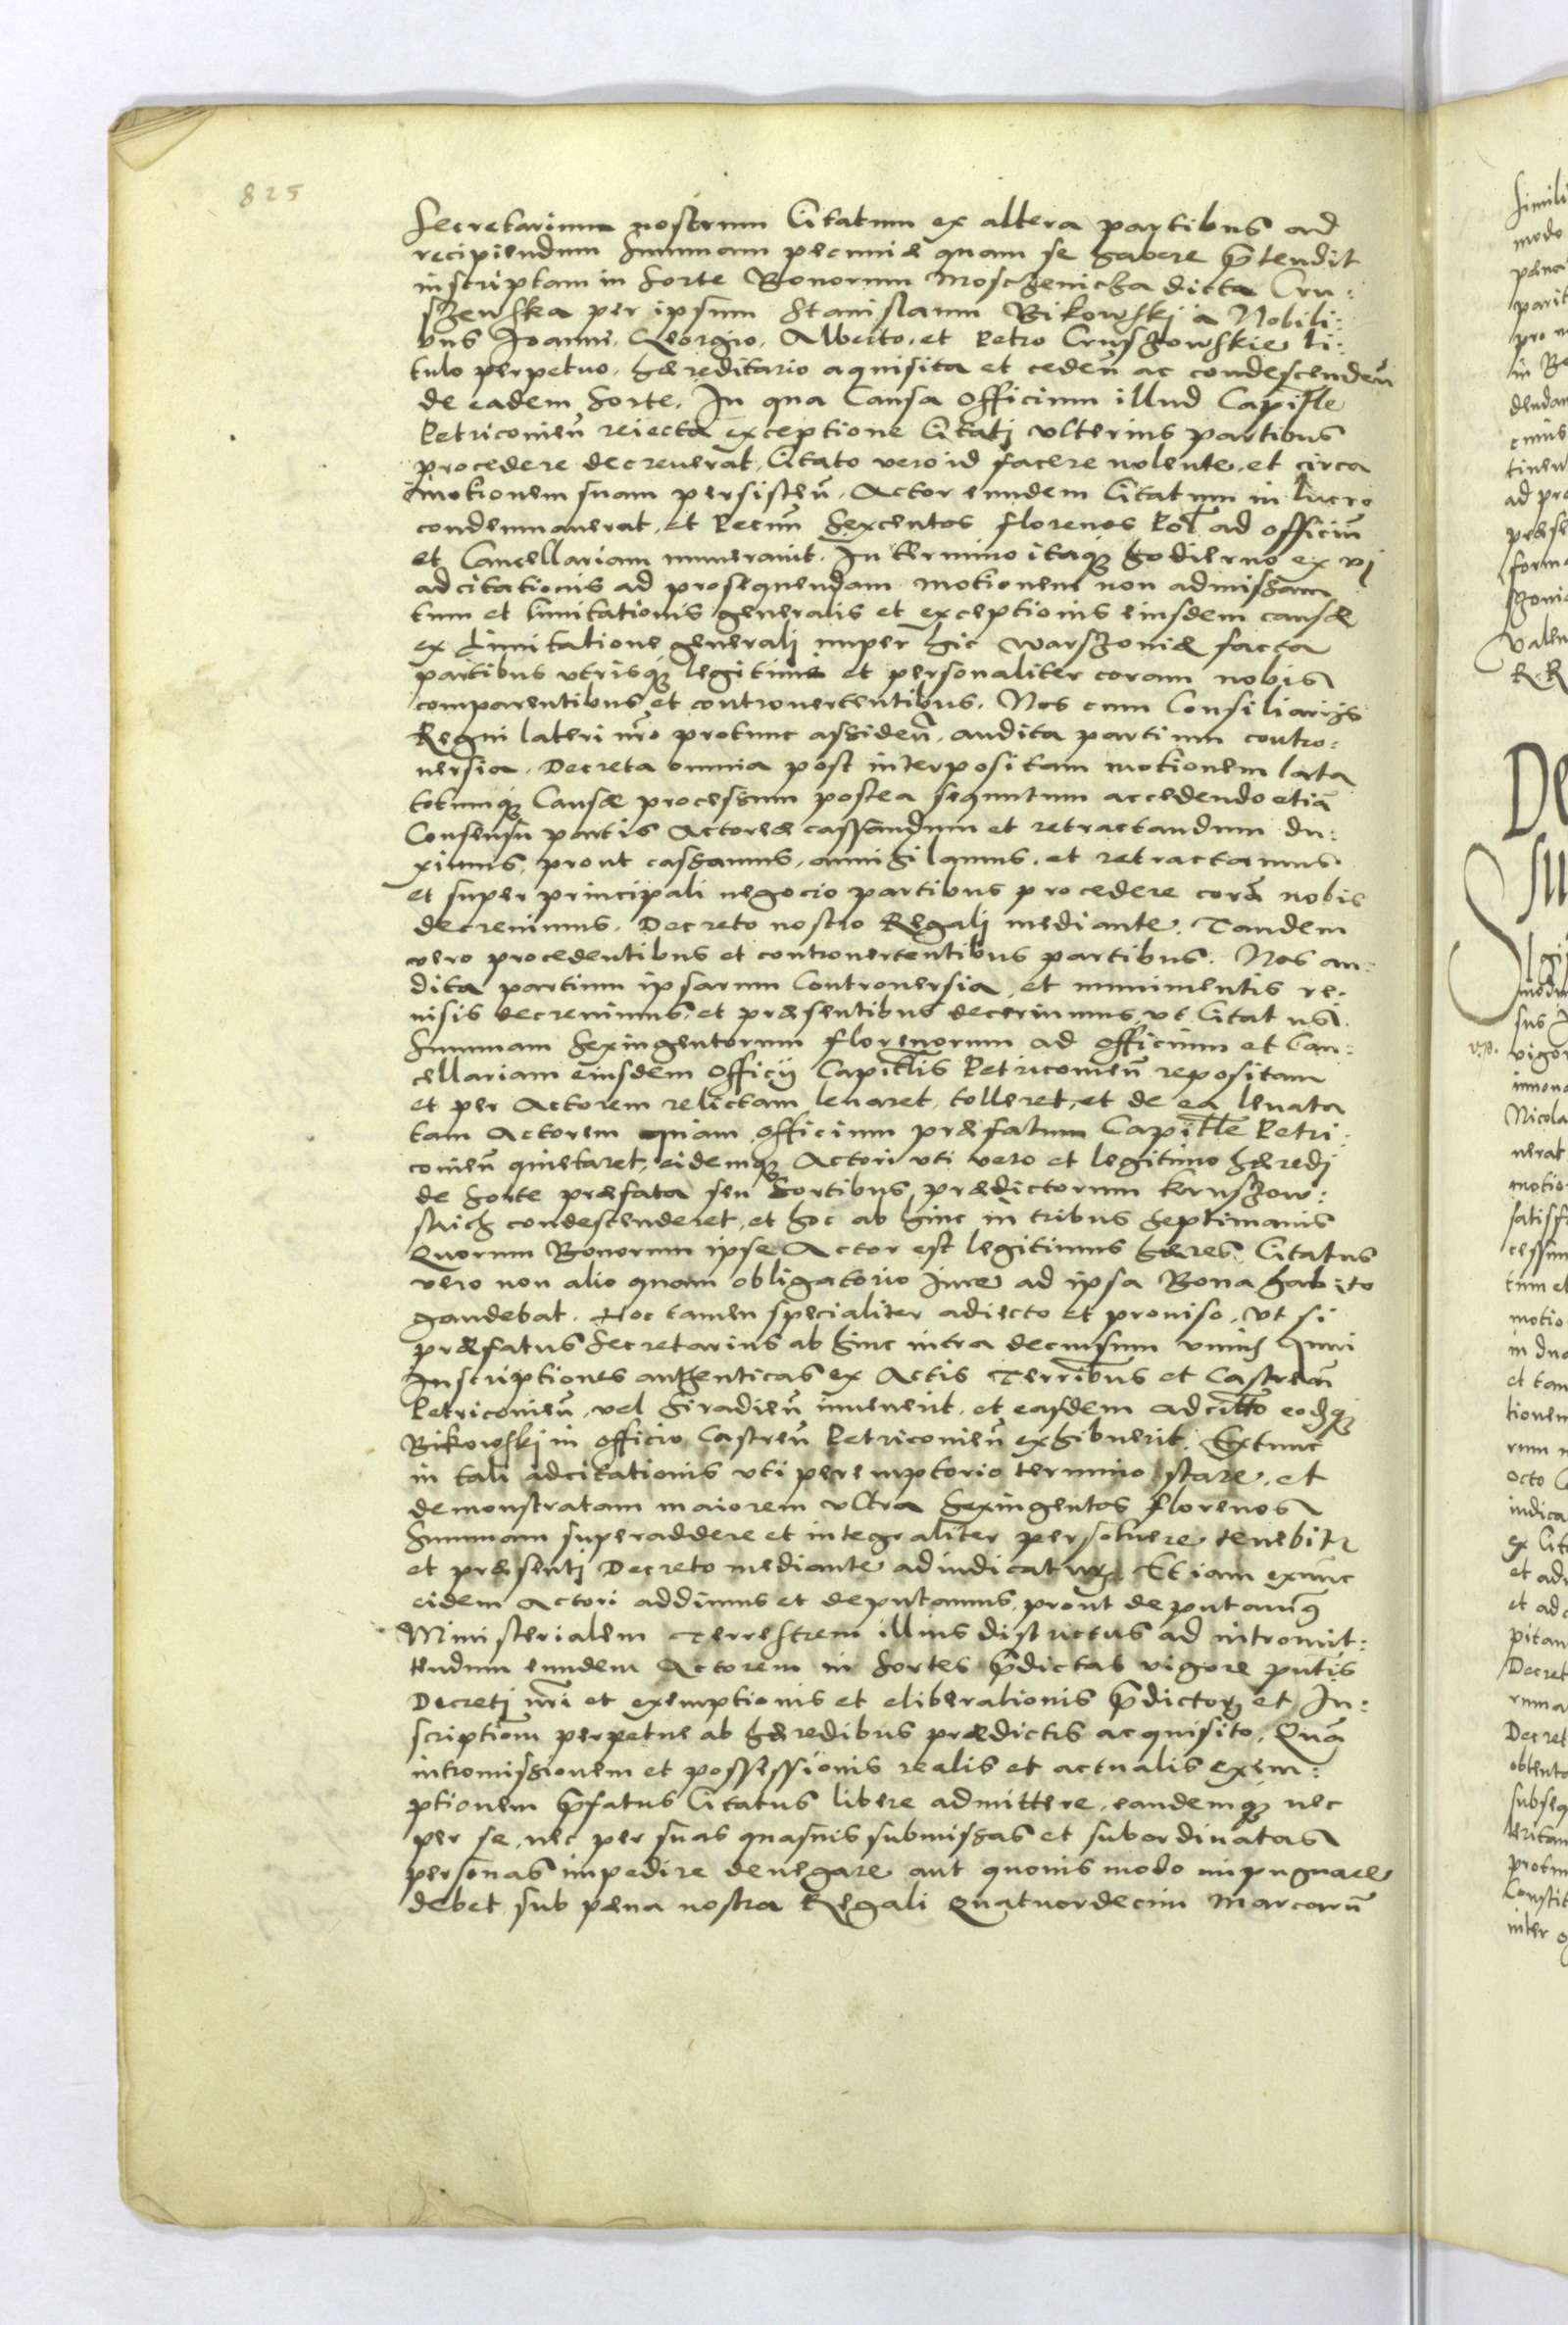 825
Secretarium nostrum Citatum ex altera partibus ad
recipiendum Summam pecuniæ quam se habere p̃tendit
inscriptam in Sorte Bonorum Moschenicha dicta Cru:
szewska per ipsum Stanislaum Bikowskj a Nobili:
bus Joanne, Georgio, Alberto, et Petro Cruszowskie ti:
tulo perpetuo, hæreditario aquisita et cedeñ ac condescendeñ
de eadem Sorte. In qua Causa Officium illud Capitlẽ
Petriconieñ reiecta exceptione Citatj vlterius partibus
procedere decreuerat, Citato vero id facere nolente, et circa
motionem suam persisteñ, Actor eundem Citatum in lucro
condemnauerat, et Pecuũ Sexcentos florenos Pol̃ ad officiũ
et Cancellariam numerauit. In termino itaqꝫ hodierno ex vj
adcitationis ad prosequendam motionem non admissam
tum et limitationis generalis et exceptionis eiusdem causæ
ex limitatione generalj nuper hic Warszouiæ facta
partibus vtrisqꝫ legitime et personaliter coram nobis
comparentibus et controuertentibus. Nos cum Consiliarijs
Regni lateri nr̃o protunc assideñ, audita partium contro:
uersia, Decreta omnia post interpositam motionem lata
totumqꝫ Causæ processum postea sequutum accedendo etiã
Consensu partis Actoreæ cassandum et retractandum du:
ximus, prout cassamus, annihilamus, et retractamus
et super principali negocio partibus procedere corã nobis
decreuimus, Decreto nostro Regalj mediante. Tandem
vero procedentibus et controuertentibus partibus. Nos au:
dita partium ipsarum Controuersia, et munimentis re:
uisis decreuimus, et præsentibus decernimus, vt Citatus
Summam Sexingentorum florenorum ad officium et Can:
cellariam eiusdem Officij Capitl̃is Petriconieñ repositam
et per Actorem relictam leuaret, tolleret, et de ea leuata
tam Actorem quam officium præfatum Capitl̃e Petri:
conieñ quietaret, eidemqꝫ Actori vti vero et legitimo hæredj
de Sorte præfata seu Sortibus prædictorum Kruszow:
skich condescenderet, et hoc ab hinc in tribus septimanis
Quorum Bonorum ipse Actor est legitimus hæres. Citatus
vero non alio quam obligatorio Jure ad ipsa Bona habito
gaudebat. Hoc tamen specialiter adiecto et prouiso, vt si
præfatus Secretarius ab hinc intra decursum vnius Anni
Inscriptiones authenticas ex Actis Terrĩbus et Castreñ
Petriconieñ, vel Siradieñ inuenerit, et easdem adcitt̃o eodqꝫ
Bikowskj in officio Castreñ Petriconieñ exhibuerit. Extunc
in tali adcitationis vti peremptorio termino stare, et
demonstratam maiorem vltra Sexingentos florenos
Summam superaddere et integraliter persoluere tenebitr
et præsentj Decreto mediante adiudicatur. Et iam exnũc
eidem Actori addimus et deputamus, prout deputauimꝰ
Ministerialem Terrestrem illius districtus ad intromit:
tendum eundem Actorem in Sortes p̃dictas vigore pñtis
Decretj nr̃i et exemptionis et eliberationis p̃dictoꝝ et In:
scriptiom̃ perpetue ab hæredibus prædictis acquisito. Quã
intromissionem et possessionis realis et actualis exem:
ptionem p̃fatus Citatus libere admittere, eandemqꝫ nec
per se, nec per suas quasuis submissas et subordinatas
personas impedire denegare aut quouis modo impugnare
debet, sub pæna nostra Regali Quatuordecim Marcarũ